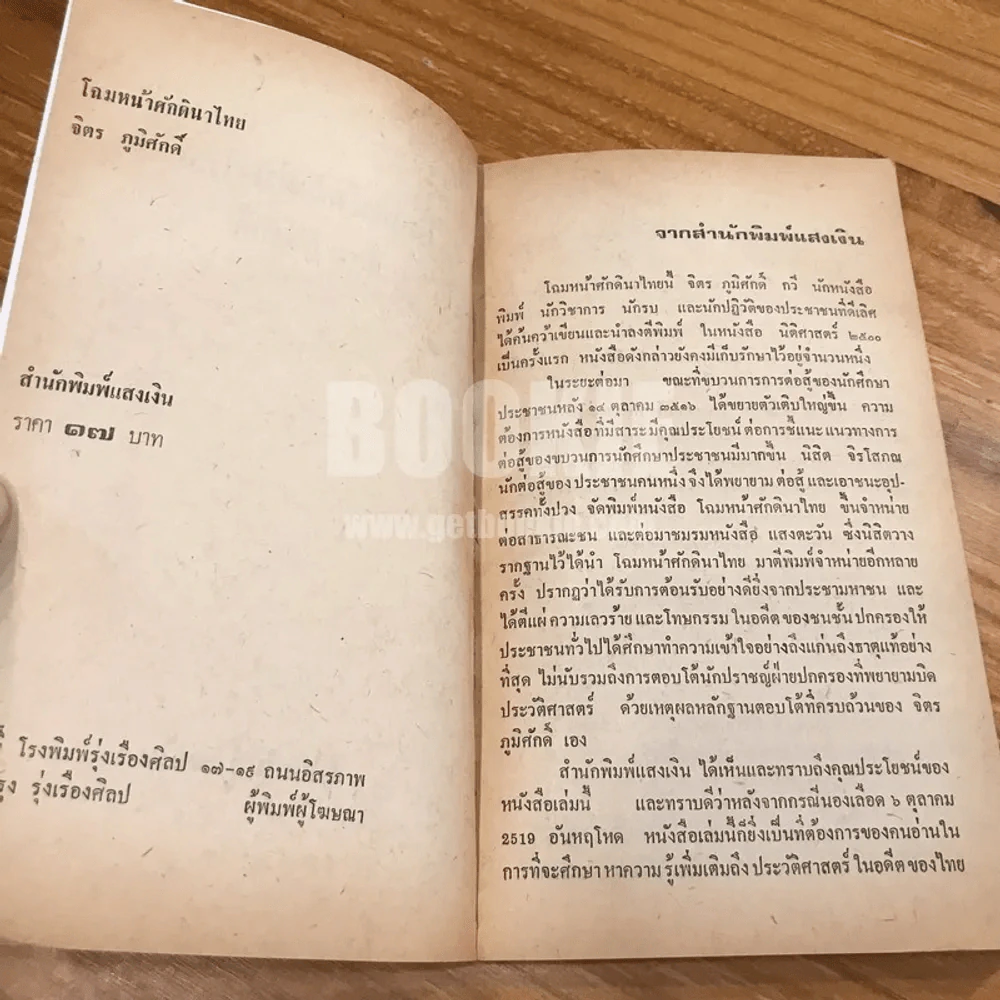 โฉมหน้าศักดินาไทย
จิตร ภูมิศักดิ์
สำนักพิมพ์แสงเงิน
ราคา ๑๗ บาท
โรงพิมพ์รุ่งเรืองศิลป ๑๗-๑๙ ถนนอิสรภาพ
รุ่งเรืองศิลป ผู้พิมพ์ผู้โฆษณา
จากสำนักพิมพ์แสงเงิน
โฉมหน้าศักดินาไทยนี้ จิตร ภูมิศักดิ์ กวี นักหนังสือ
พิมพ์ นักวิชาการ นักรบ และนักปฏิวัติของประชาชนที่ดีเลิศ
ได้ค้นคว้าเขียนและนำลงตีพิมพ์ ในหนังสือ นิติศาสตร์ ๒๕๐๐
เป็นครั้งแรก หนังสือดังกล่าวยังคงมีเก็บรักษาไว้อยู่จำนวนหนึ่ง
ในระยะต่อมา ขณะที่ขบวนการการต่อสู้ของนักศึกษา
ประชาชนหลัง ๑๔ ตุลาคม ๓๕๑๖ ได้ขยายตัวเติบใหญ่ขึ้น ความ
ต้องการหนังสือที่มีสาระมีคุณประโยชน์ ต่อการชี้แนะแนวทางการ
ต่อสู้ของขบวนการนักศึกษาประชาชนมีมากขึ้น นิสิต จิรโสภณ
นักต่อสู้ของ ประชาชนคนหนึ่ง จึงได้พยายาม ต่อสู้ และเอาชนะอุป-
สรรคทั้งปวง จัดพิมพ์หนังสือ โฉมหน้าศักดินาไทย ขึ้นจำหน่าย
ต่อสาธารณะชน และต่อมาชมรมหนังสือ แสงตะวัน ซึ่งนิสิตวาง
รากฐานไว้ได้นำ โฉมหน้าศักดินาไทย มาตีพิมพ์จำหน่ายอีกหลาย
ครั้ง ปรากฏว่าได้รับการต้อนรับอย่างดียิ่งจากประชามหาชน และ
ได้ตีแผ่ ความเลวร้าย และโทษกรรม ในอดีต ของชนชั้น ปกครองให้
ประชาชนทั่วไปได้ศึกษาทำความเข้าใจอย่างถึงแก่นถึงธาตุแท้อย่าง
ที่สุด ไม่นับรวมถึงการตอบโต้นักปราชญ์ฝ่ายปกครองที่พยายามบิด
ประวัติศาสตร์ ด้วยเหตุผลหลักฐานตอบโต้ที่ครบถ้วนของ จิตร
ภูมิศักดิ์ เอง
สำนักพิมพ์แสงเงิน ได้เห็นและทราบถึงคุณประโยชน์ของ
หนังสือเล่มนี้ และทราบดีว่าหลังจากกรณีนองเลือด ๖ ตุลาคม
2519 อันหฤโหด หนังสือเล่มนี้ก็ยิ่งเป็นที่ต้องการของคนอ่านใน
การที่จะศึกษา หาความ รู้เพิ่มเติมถึง ประวัติศาสตร์ ในอดีต ของไทย